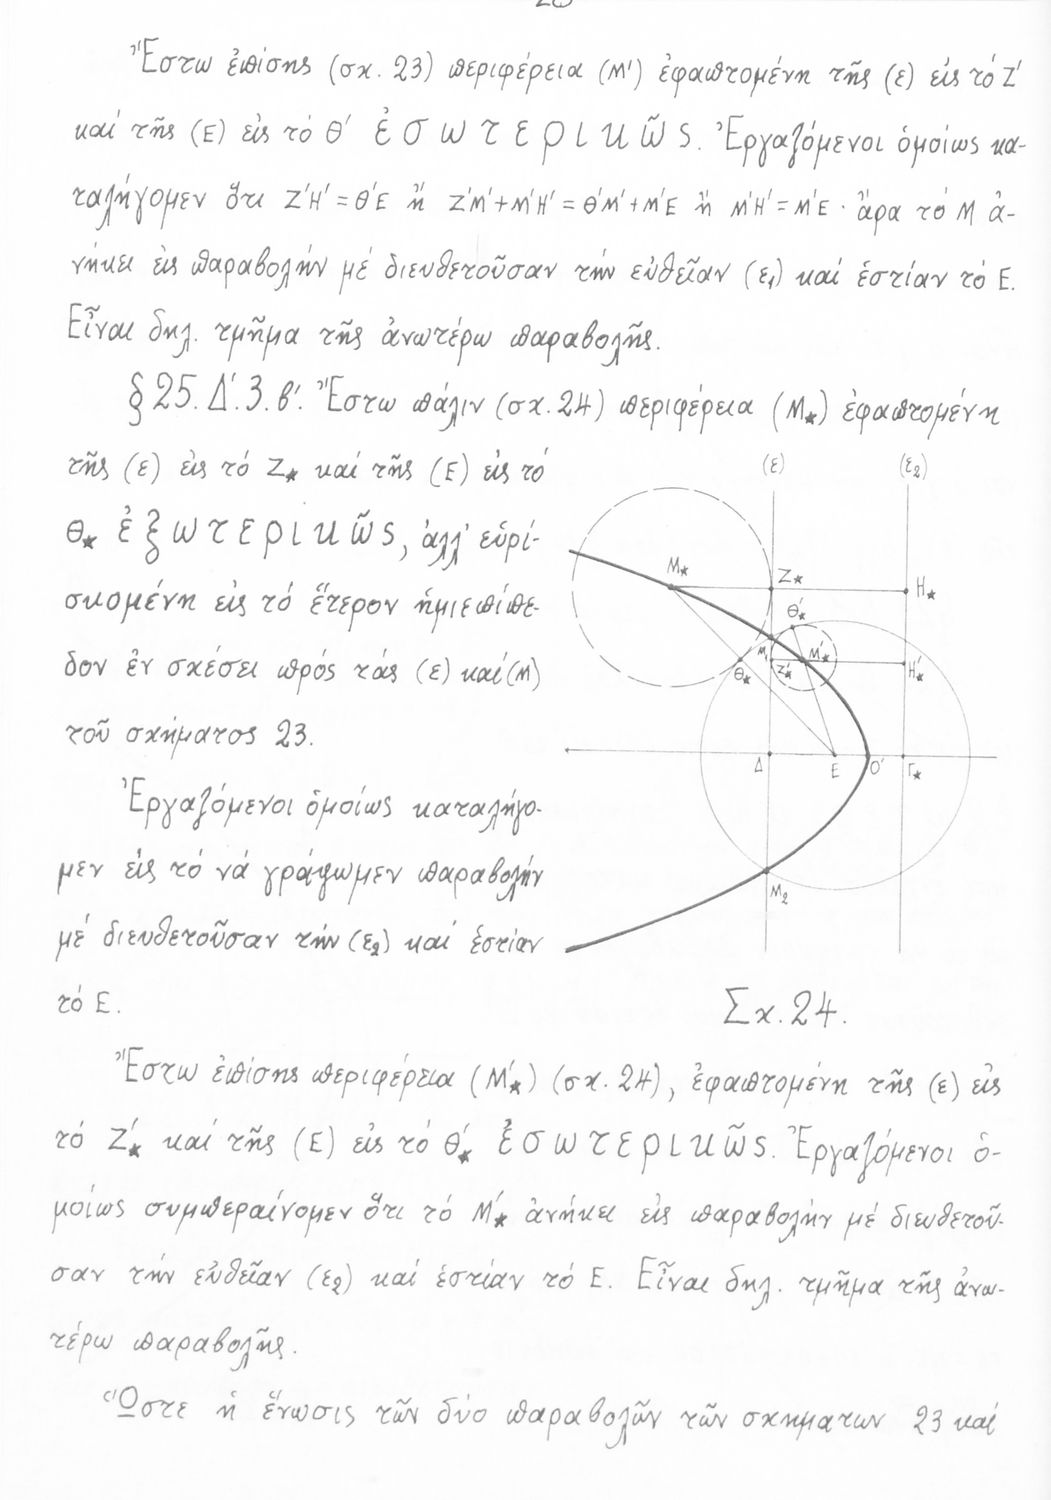 Ἔστω ἐπίσης (σχ. 23) περιφέρεια (Μ') ἐφαπτομένη τῆς (ε) εἰς τό Ζ'
καί τῆς (Ε) εἰς τό Θ' ἐσωτερικῶς. Ἐργαζόμενοι ὁμοίως κα-
ταλήγομεν ὅτι Ζ'Η' = Θ'Ε ἤ Ζ'Μ'+Μ'Η' = Θ'Μ'+Μ'Ε ἤ Μ'Η' = Μ'Ε · ἄρα τό Μ ἀ-
νήκει εἰς παραβολήν μέ διευθετοῦσαν τήν εὐθεῖαν (ε₁) καί ἑστίαν τό Ε.
Εἶναι δηλ. τμῆμα τῆς ἀνωτέρω παραβολῆς.
§ 25. Δ'. 3. β'. Ἔστω πάλιν (σχ. 24) περιφέρεια (Μ★) ἐφαπτομένη
τῆς (ε) εἰς τό Ζ★ καί τῆς (Ε) εἰς τό
Θ★ ἐξωτερικῶς, ἀλλ' εὑρί-
σκομένη εἰς τό ἕτερον ἡμιεπίπε-
δον ἐν σχέσει πρός τάς (ε) καί (Μ)
τοῦ σχήματος 23.
Ἐργαζόμενοι ὁμοίως καταλήγο-
μεν εἰς τό νά γράψωμεν παραβολήν
μέ διευθετοῦσαν τήν (ε₂) καί ἑστίαν
τό Ε.
(ε)
(ε₂)
Μ★
Ζ★
Η★
Θ'★
Μ₁
Μ'★
Θ★
Ζ'★
Η'★
Δ
Ε
Ο'
Γ★
Μ₂
Σχ. 24.
Ἔστω ἐπίσης περιφέρεια (Μ'★) (σχ. 24), ἐφαπτομένη τῆς (ε) εἰς
τό Ζ'★ καί τῆς (Ε) εἰς τό Θ'★ ἐσωτερικῶς. Ἐργαζόμενοι ὁ-
μοίως συμπεραίνομεν ὅτι τό Μ'★ ἀνήκει εἰς παραβολήν μέ διευθετοῦ-
σαν τήν εὐθεῖαν (ε₂) καί ἑστίαν τό Ε. Εἶναι δηλ. τμῆμα τῆς ἀνω-
τέρω παραβολῆς.
Ὥστε ἡ ἕνωσις τῶν δύο παραβολῶν τῶν σχηματων 23 καί